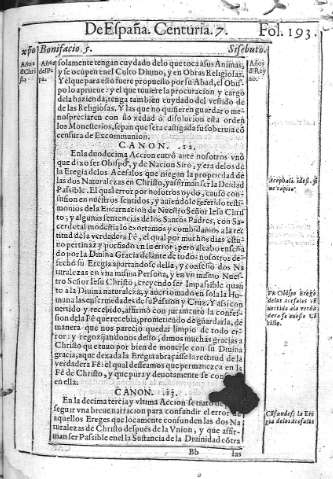 De España. Centuria. 7. Fol. 193.
xpo Bonifacio. 5. Sisebuto.
solamente tengan cuydado delo que toca a sus Animas,
y se ocupen en el Culto Diuino, y en Obras Religiosas.
Y el que para esto fuere propuesto por su Abad, el Obis-
po lo aprueue: y el que tuuiere la procuracion y cargo
dela hazienda, tenga tambien cuydado del vestido de
de las Religiosas. Y las que no quisieren guardar o me-
nospreciaren con su osadia ò disolucion esta orden
los Monesterios, sepan que sera castigada su soberuia cõ
censura de Excommunion.
CANON. .12.
En la duodecima Accion entrò ante nosotros vno
que dixo ser Obispo, y de Nacion Siro, y era delos de
la Eregia delos Acefalos que niegan la propriedad de
las dos Naturalezas en Christo, y afirman ser la Deidad
Passible. El qual error por nosotros oydo, causò con-
fusion en nuestros sentidos, y auiendole referido testi-
monios dela Encarnacion de Nuestro Señor Iesu Chris-
to, y algunas sentencias de los Santos Padres, con Sa-
cerdotal modestia lo exortamos y combidamos a la rec-
titud dela verdadera Fè, el qual por muchos dias estu-
uo pertinàz y porfiado en su error; pero al cabo enseña
do por la Diuina Gracia delante de todos nosotros de-
sechò su Eregia apartandose della, y confessò dos Na-
turalezas en vna misma Persona, y en vn mismo Nuestro
Señor Iesu Christo, creyendo ser Impasible quan
to a la Diuina naturaleza, y auer tomado en sola la Hu-
mana las enfermedades de su Passion y Cruz. Y assi con-
uertido y recebido, afirmò con juramento la confes-
sion dela Fè que recebia, prometiendo de guardarla, de
manera que nos pareciò quedar limpio de todo err-
or; y regozijandonos desto, damos muchas gracias a
Christo que tuuo por bien de mouerle con su Diuina
gracia, a que dexada la Eregia abraçasse la rectitud de la
verdadera Fè: el qual deseamos que permanezca en la
Fè de Christo, y que pura y deuotamente se con
en ella.
CANON. .13.
En la decima tercia y vltima Accion se tratò de
seguir vna breue narracion para confundir el error de
aquellos Ereges que locamente confunden las dos Na
turalezas de Christo despues de la Vnion, y que affir-
man ser Passible en el la Sustancia de la Diuinidad cõtra
Bb las